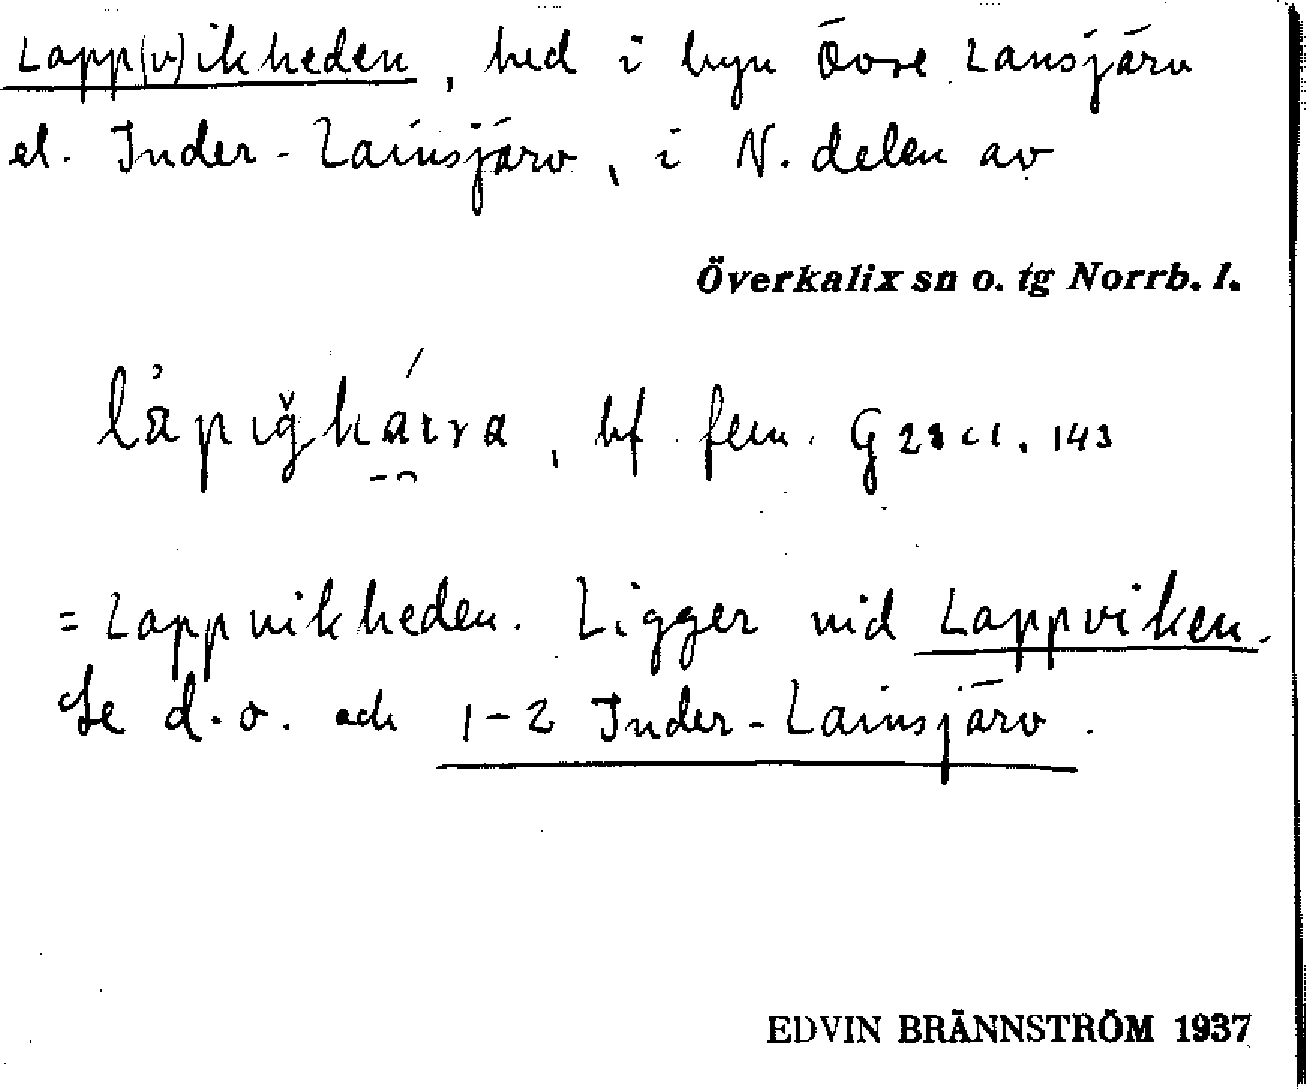 Lapp(v)ikheden, hed i byn Övre Lansjärv
el. Inder-Lainsjärv, i N. delen av
Överkalix sn o. tg Norrb. l.
bf. fem. G
= Lappvikheden. Ligger vid Lappviken.
Se d.o. och 1-2 Inder-Lainsjärv.
EDVIN BRÄNNSTRÖM 1937